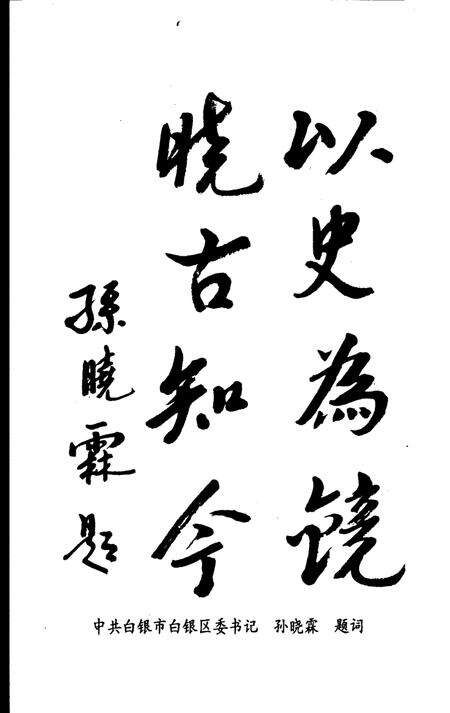 以史為镜
晓古知今
孫曉霖题
中共白银市白银区委书记 孙晓霖 题词